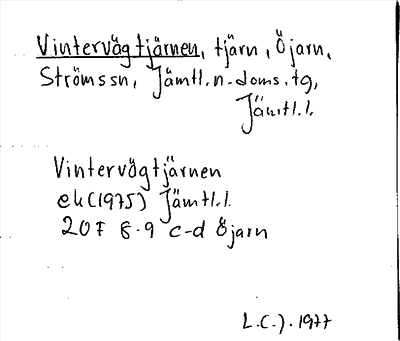 Vintervägtjärnen, tjärn, Öjarn,
Strömssn, Jämtl.n.doms.tg,
Jämtl.l.
Vintervägtjärnen
ek(1975) Jämtl.l.
20F 8-9 c-d Öjarn
L.C.J. 1977